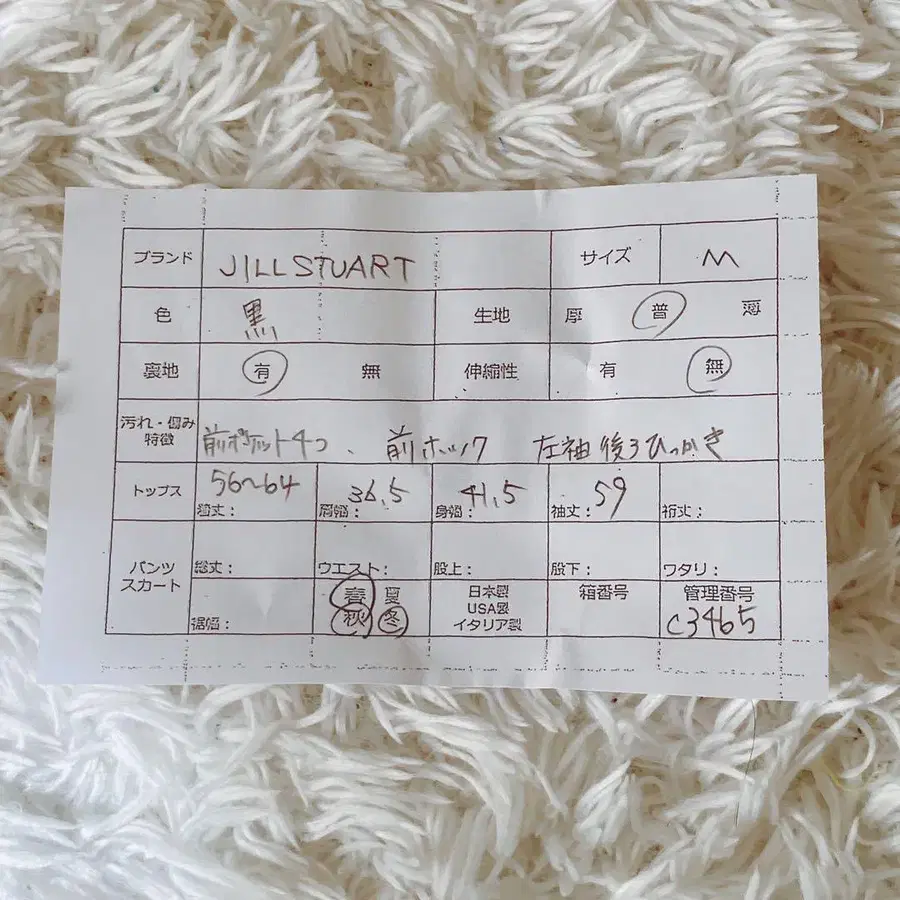 ブランド JILLSTUART サイズ M
色 黒 生地 厚 普 薄
裏地 有 無 伸縮性 有 無
汚れ・傷み
特徴
前ポケット4つ、前ホック 左袖後ろひっかき
トップス 56〜64 36.5 41.5 59
着丈： 肩幅： 身幅： 袖丈： 裄丈：
パンツ
スカート
総丈： ウエスト： 股上： 股下： ワタリ：
裾幅：
春 夏
秋 冬
日本製
USA製
イタリア製
箱番号
管理番号
C3465